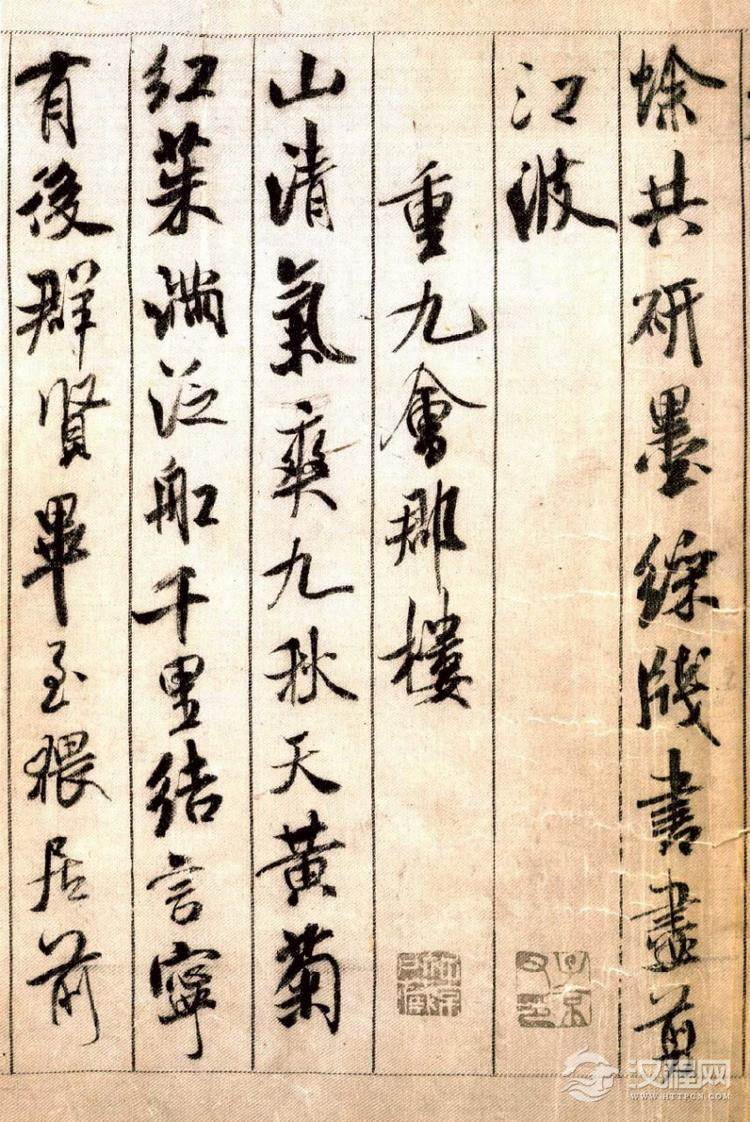 蜍共研墨綵牋書盡剪
江波
重九會郡樓
山清氣爽九秋天黃菊
紅茱滿泛船千里結言寧
有後群賢畢至猥居前
汉程网
WWW.HTTPCN.COM